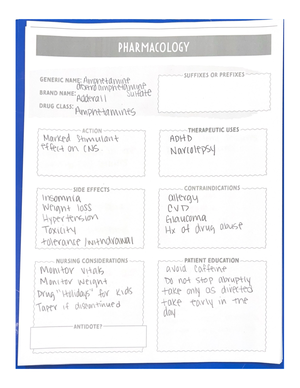 PHARMACOLOGY
GENERIC NAME: Amphetamine
dextroamphetamine
sulfate
BRAND NAME: Adderall
DRUG CLASS: Amphetamines
SUFFIXES OR PREFIXES
ACTION
Marked stimulant
effect on CNS
THERAPEUTIC USES
ADHD
Narcolepsy
SIDE EFFECTS
Insomnia
Weight loss
Hypertension
Toxicity
tolerance/withdrawal
CONTRAINDICATIONS
allergy
CVD
Glaucoma
Hx of drug abuse
NURSING CONSIDERATIONS
Monitor vitals
Monitor weight
Drug "Holidays" for kids
Taper if discontinued
ANTIDOTE?
PATIENT EDUCATION
avoid caffeine
Do not stop abruptly
take only as directed
take early in the
day